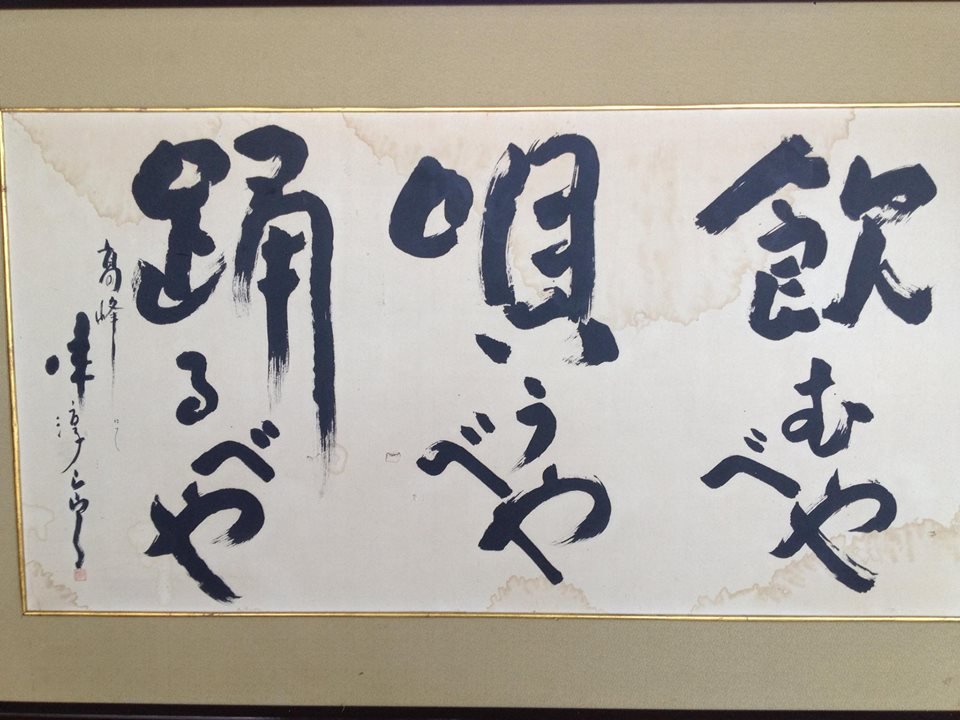 飲むべや
唄うべや
踊るべや
高峰にて